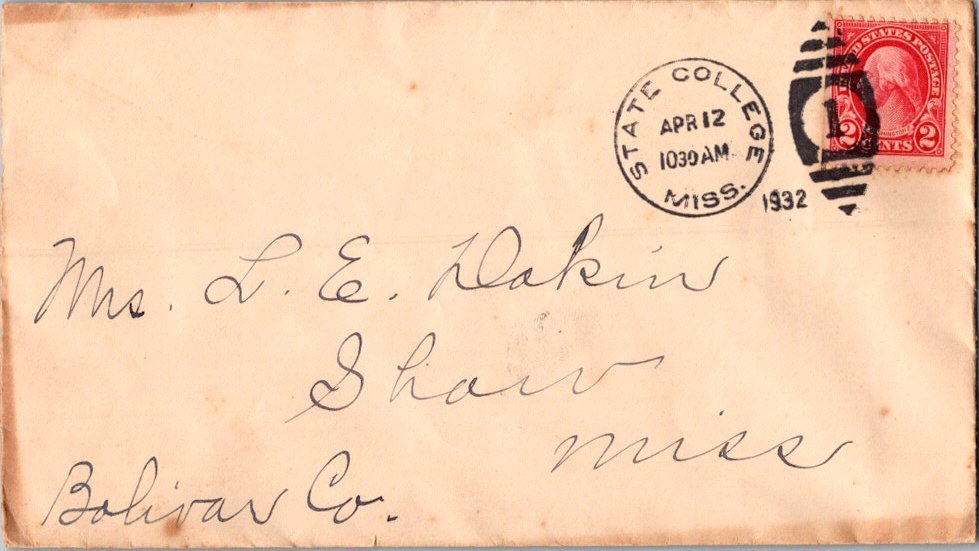 STATE COLLEGE
APR 12
1030 AM
MISS.
1932
1
UNITED STATES POSTAGE
WASHINGTON
2 CENTS 2
Mrs. L. E. Dakin
Shaw
Miss
Bolivar Co.